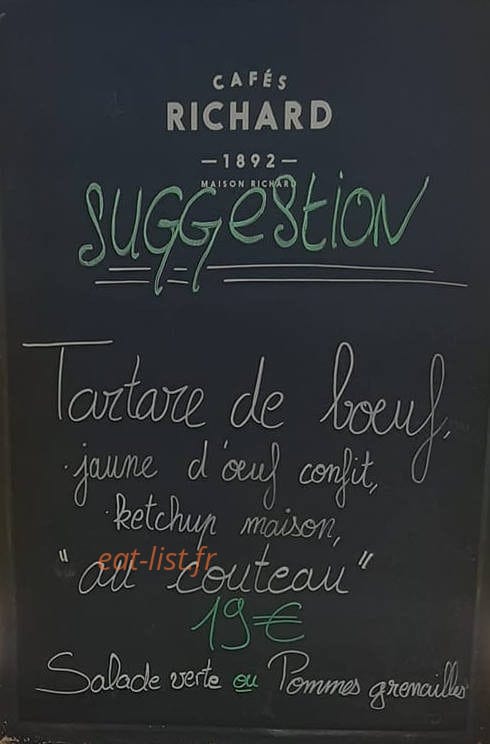 CAFÉS
RICHARD
—1892—
MAISON RICHARD
SUGGESTION
Tartare de bœuf,
jaune d'œuf confit,
ketchup maison,
eat-list.fr
"au couteau"
19€
Salade verte ou Pommes grenailles